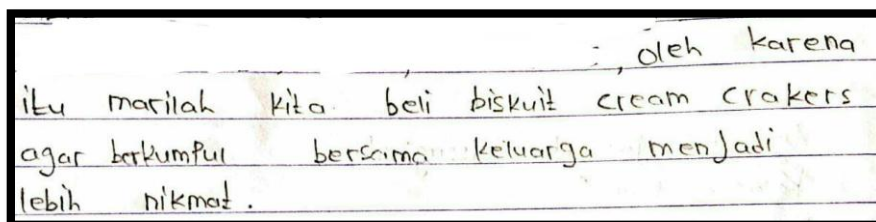 , oleh karena
itu marilah kita beli biskuit cream crakers
agar berkumpul bersama keluarga menjadi
lebih nikmat.